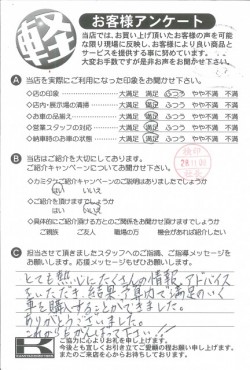 軽
お客様アンケート
当店では、お買い上げ頂いたお客様の声を可能
な限り現場に反映し、お客様により良い商品と
サービスを提供する事に努めています。
大変お手数ですが是非お声をお聞かせ下さい。
A 当店を実際にご利用になった印象をお聞かせ下さい。
◇店の印象 大満足 満足 ふつう やや不満 不満
◇店内・展示場の清掃 大満足 満足 ふつう やや不満 不満
◇お車の品揃え 大満足 満足 ふつう やや不満 不満
◇営業スタッフの対応 大満足 満足 ふつう やや不満 不満
◇納車時のお車の状態 大満足 満足 ふつう やや不満 不満
B 当店はご紹介を大切にしております。
ご紹介キャンペーンについてお聞かせ下さい。
◇カミタケご紹介キャンペーンのご説明はありましたでしょうか
はい いいえ
◇ご紹介を頂けますでしょうか
はい いいえ
◇具体的にご紹介頂ける方とのご関係をお聞かせ頂けますでしょうか
ご親族 ご友人 職場の方 機会があれば紹介したい
C 担当させて頂きましたスタッフへのご指摘、ご指導メッセージを
お願いします。応援メッセージもぜひお願いします。
とても熱心にたくさんの情報、アドバイス
をいただき、結果、予算内で満足のいく
車を購入することができました。
ありがとうございました。
これからもがんばって下さい!!
K
ご協力に心よりお礼を申し上げます。
今後とも宜しくお引き立てご愛顧の程お願い申し上げます。
またのご来店を心からお待ちしております。